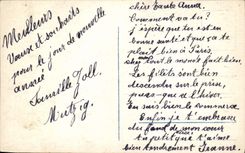 Meilleurs
Vœux et souhaits
pour le jour de nouvelle
année
Famille Joll.
Mutzig.
chère Tante Anna.
Comment va tu?
j'espère que tu est en
bonne santé et que ça te
plait bien à Paris.
chez tout le monde fait bien.
Les filets sont bien
descendus sur le prix,
ça te
Tu sais bien le commerce.
Enfin je t'embrasse
du fond de mon cœur
ta petite qui t'aime
bien tendrement Jeanne.